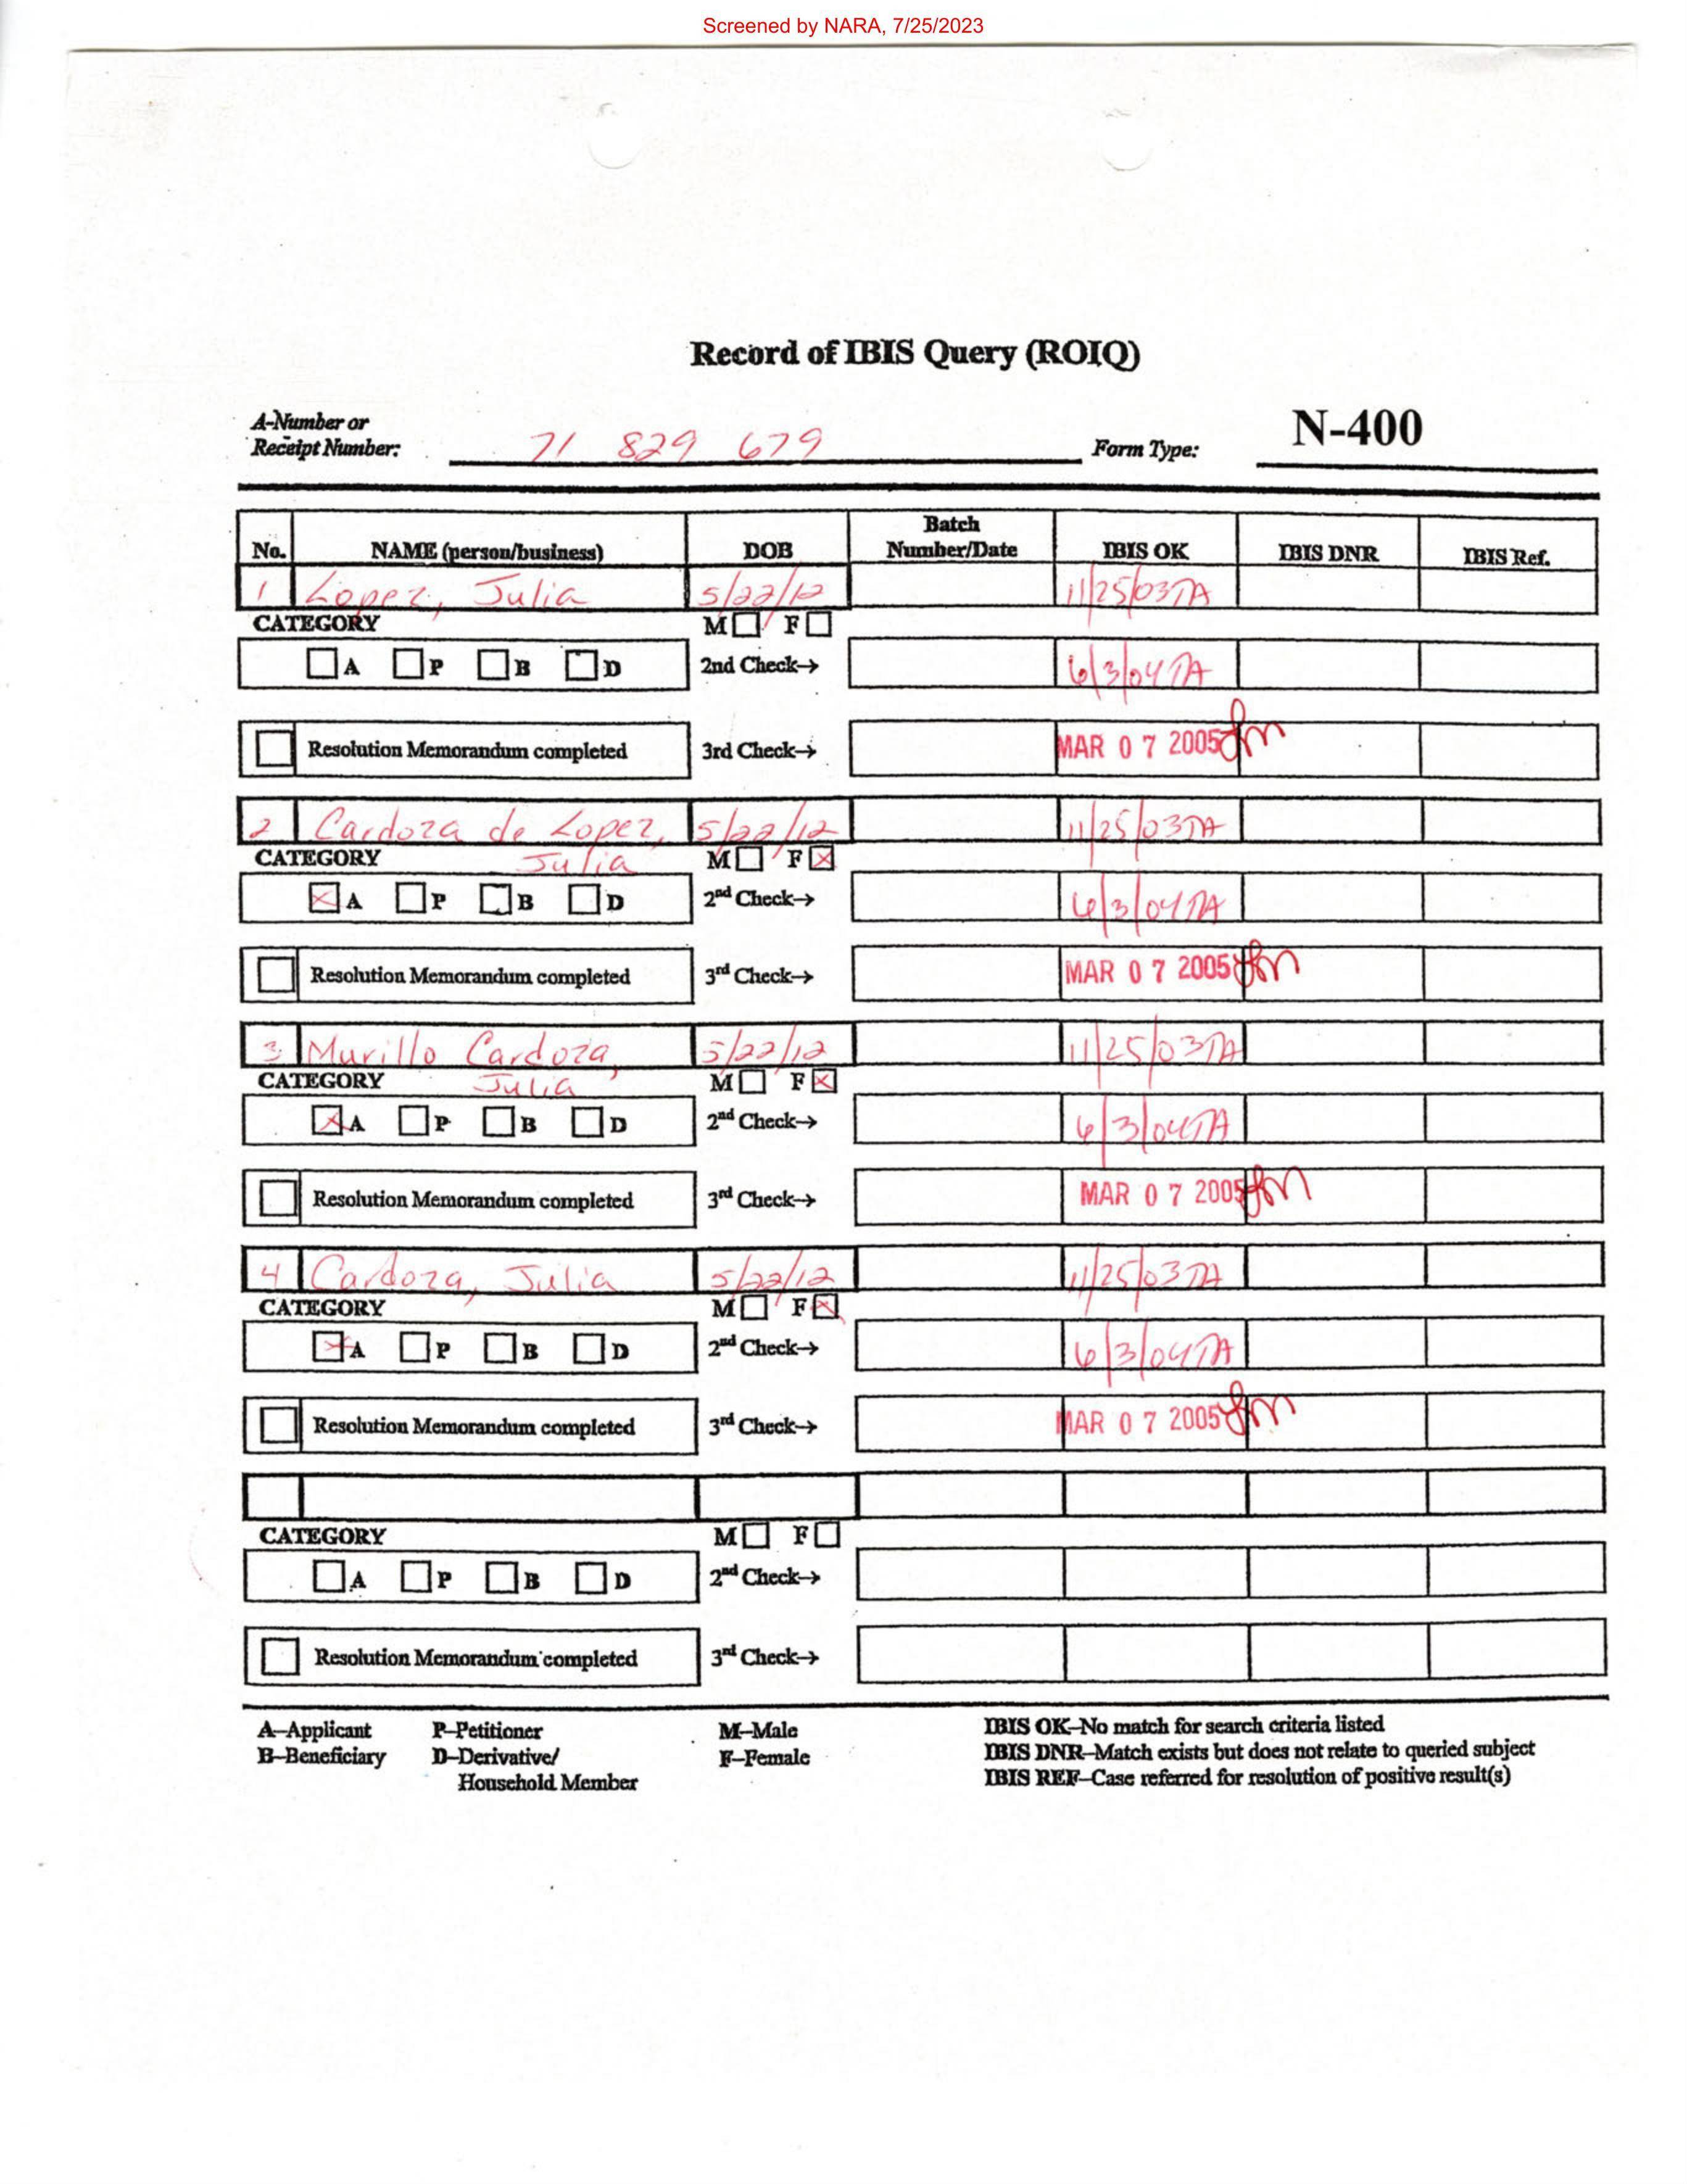 Screened by NARA, 7/25/2023
Record of IBIS Query (ROIQ)
A-Number or
Receipt Number: 71 829 679 Form Type: N-400
No. NAME (person/business) DOB Batch Number/Date IBIS OK IBIS DNR IBIS Ref.
1 Lopez, Julia 5/22/12 11/25/03TA
CATEGORY M F
A P B D 2nd Check→ 6/3/04TA
Resolution Memorandum completed 3rd Check→ MAR 07 2005
2 Cardoza de Lopez, 5/22/12 11/25/03TA
CATEGORY Julia M F X
X A P B D 2nd Check→ 6/3/04TA
Resolution Memorandum completed 3rd Check→ MAR 07 2005
3 Murillo Cardoza, 5/22/12 11/25/03TA
CATEGORY Julia M F X
X A P B D 2nd Check→ 6/3/04TA
Resolution Memorandum completed 3rd Check→ MAR 07 2005
4 Cardoza, Julia 5/22/12 11/25/03TA
CATEGORY M F X
X A P B D 2nd Check→ 6/3/04TA
Resolution Memorandum completed 3rd Check→ MAR 07 2005
CATEGORY M F
A P B D 2nd Check→
Resolution Memorandum completed 3rd Check→
A–Applicant P–Petitioner M–Male IBIS OK–No match for search criteria listed
B–Beneficiary D–Derivative/ F–Female IBIS DNR–Match exists but does not relate to queried subject
Household Member IBIS REF–Case referred for resolution of positive result(s)